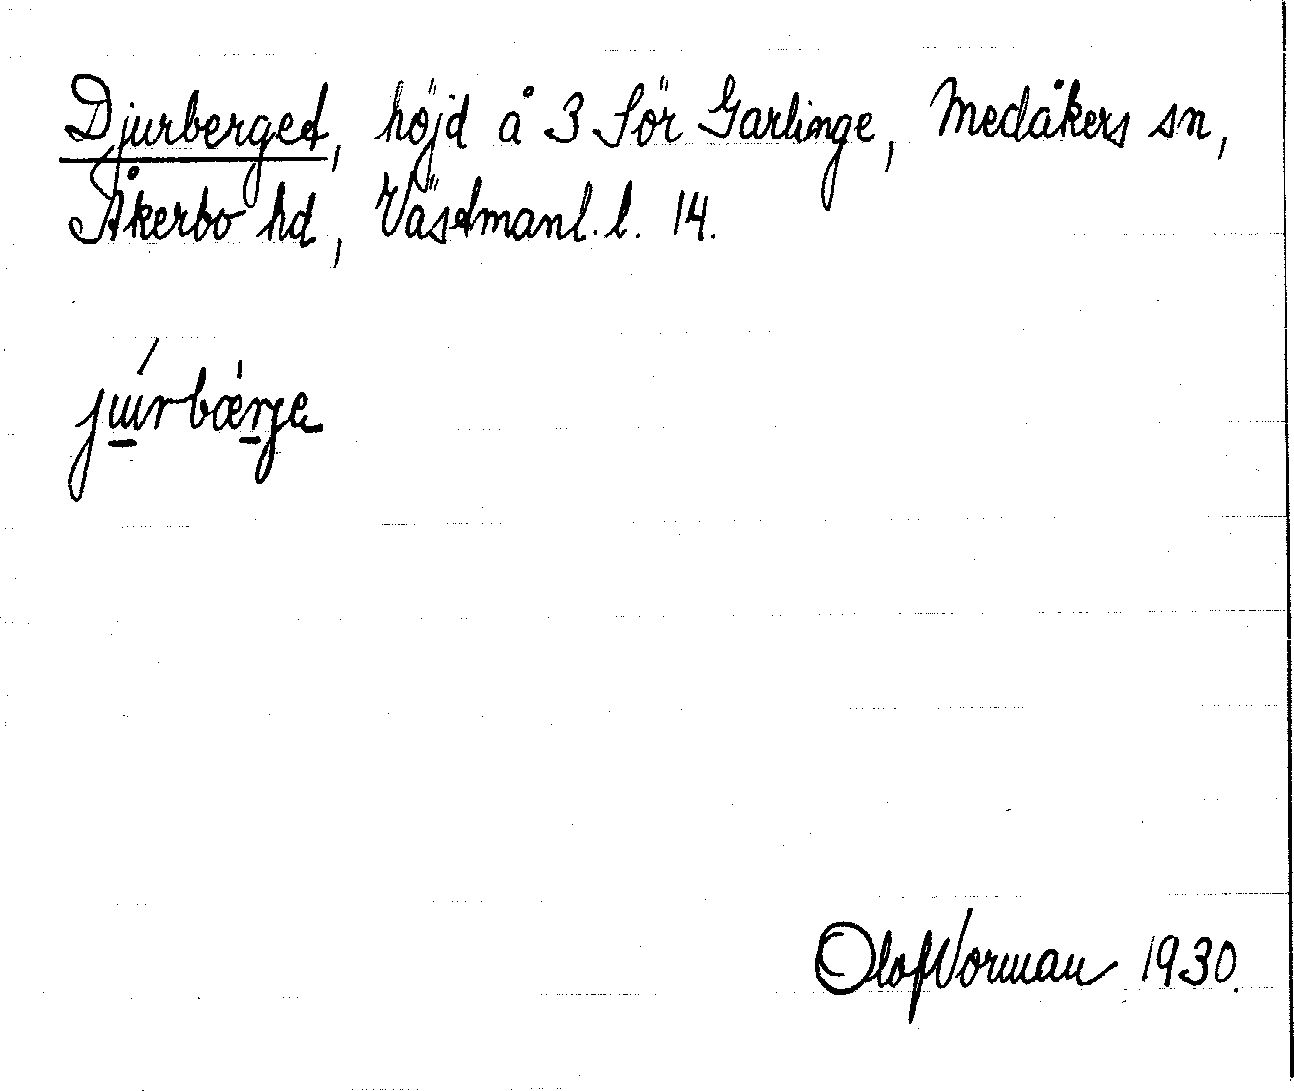 Djurberget, höjd å 3 Sör Garlinge, Medåkers sn,
Åkerbo hd, Västmanl. l. 14.
Olof Norman 1930.